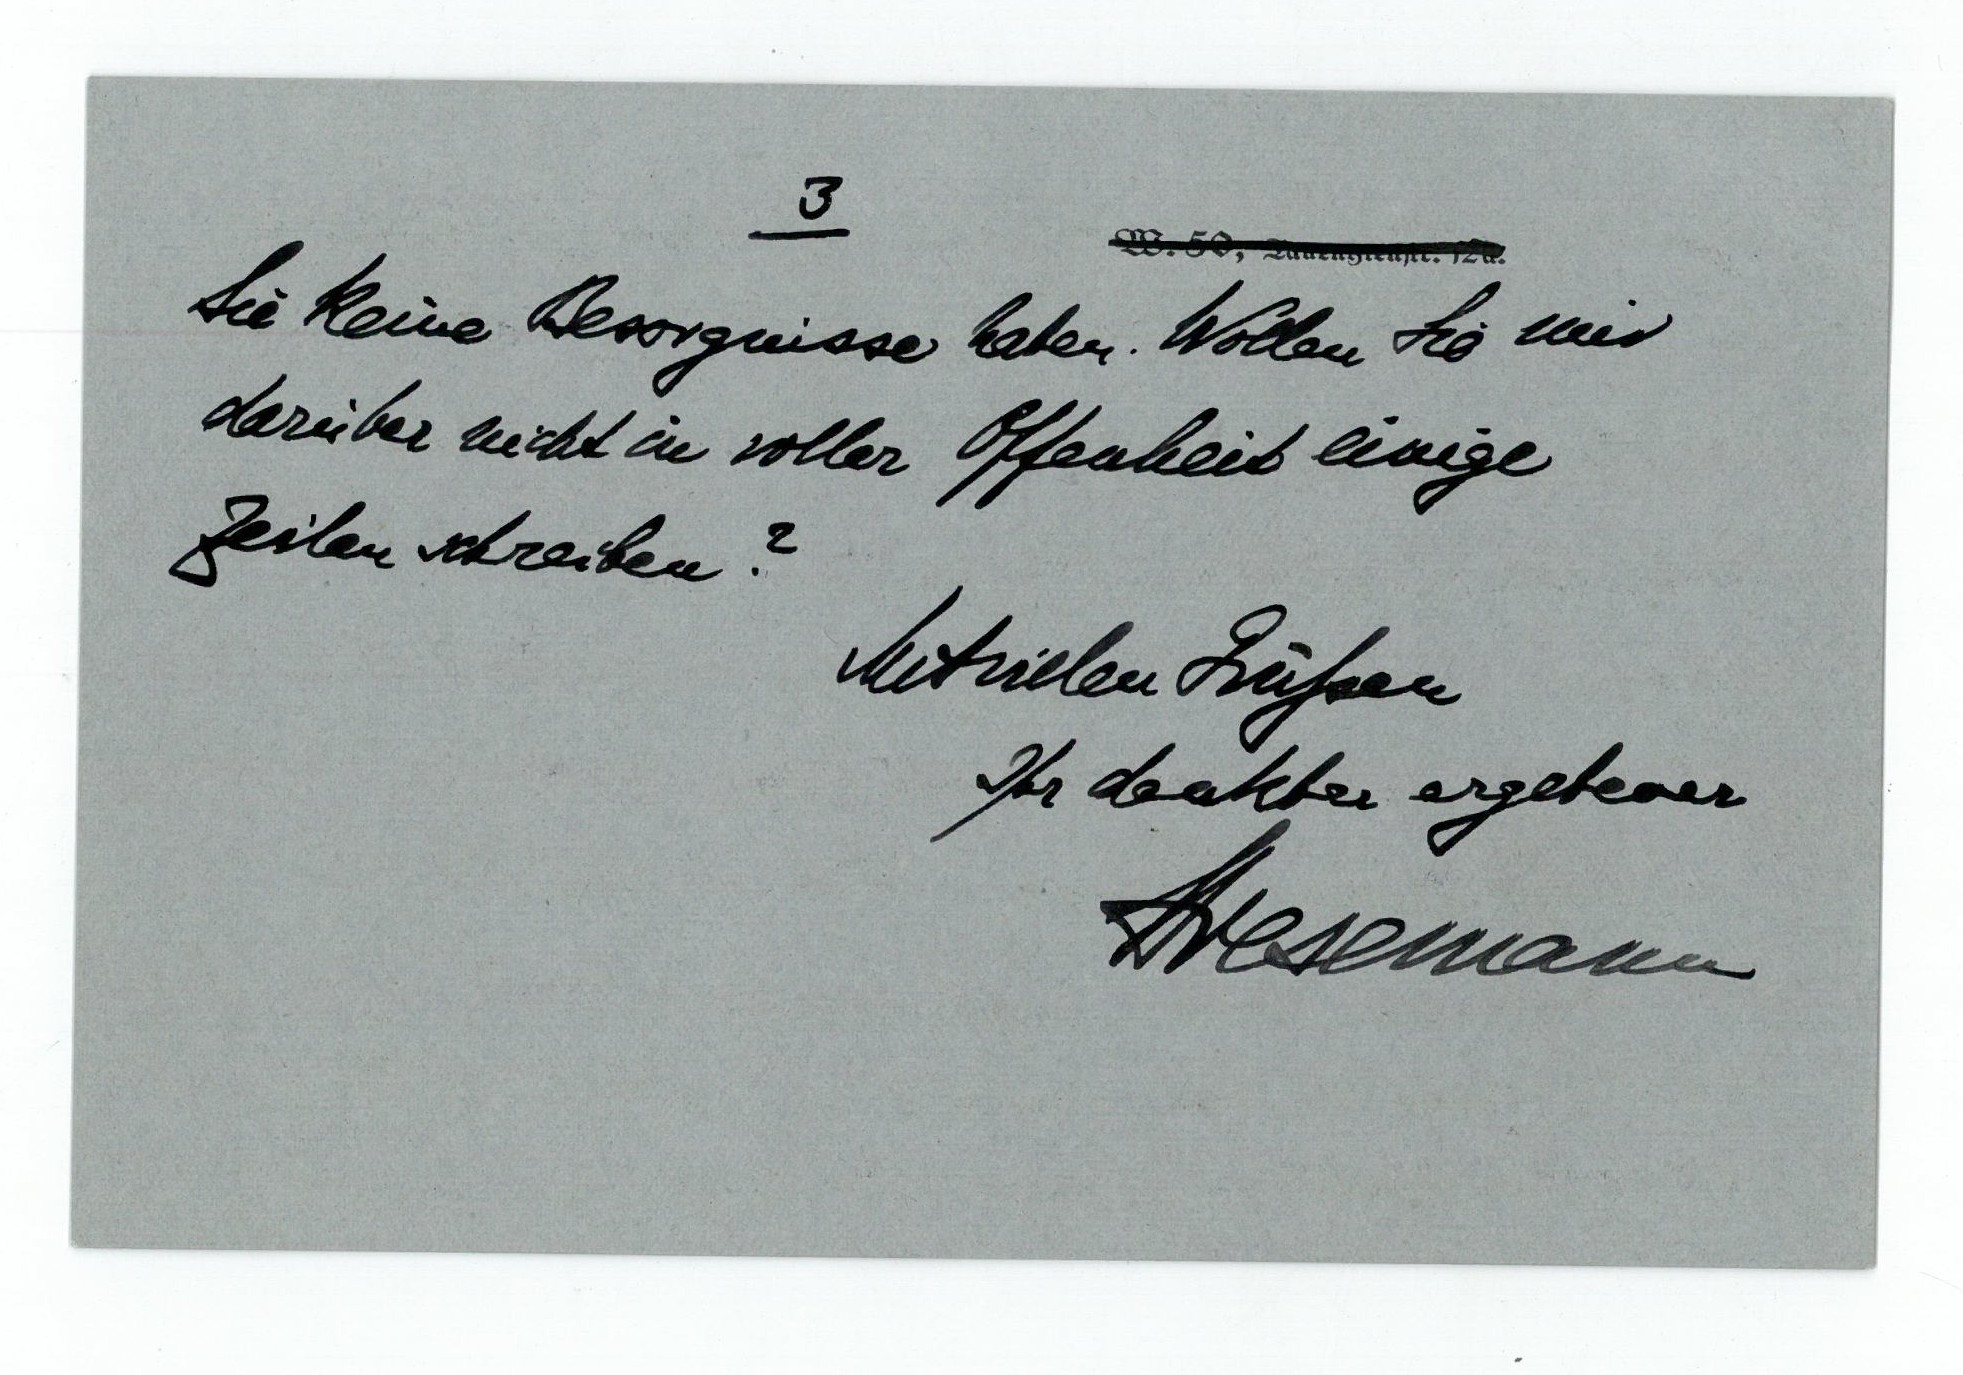 3
W. 50, Tauentzienstr. 12a.
Sie keine Besorgnisse haben. Wollen Sie mir
darüber nicht in voller Offenheit einige
Zeilen schreiben?
Mit vielen Grüßen
Ihr dankbar ergebener
Stresemann